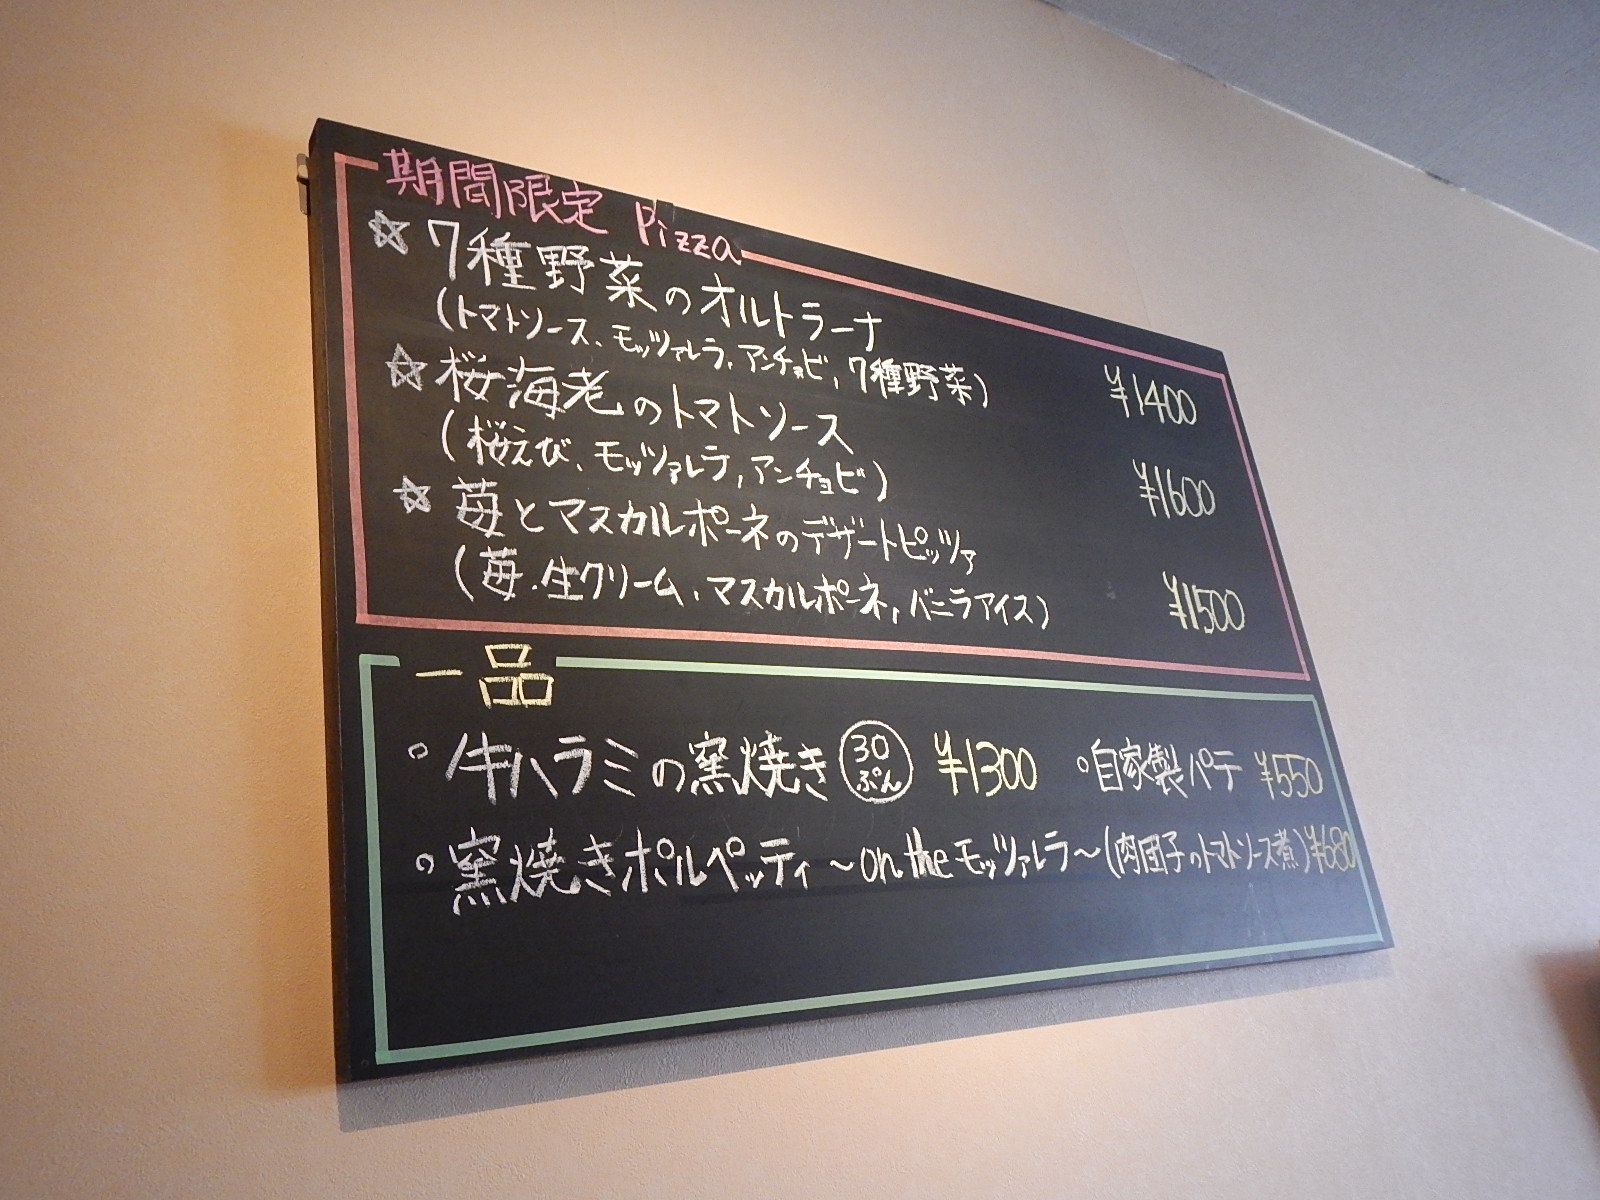 期間限定 Pizza
☆ 7種野菜のオルトラーナ
(トマトソース、モッツァレラ、アンチョビ、7種野菜) ¥1400
☆ 桜海老のトマトソース
(桜えび、モッツァレラ、アンチョビ) ¥1600
☆ 苺とマスカルポーネのデザートピッツァ
(苺、生クリーム、マスカルポーネ、バニラアイス) ¥1500
一品
○ 牛ハラミの窯焼き 30ぷん ¥1300 ○ 自家製パテ ¥550
○ 窯焼きポルペッティ 〜on the モッツァレラ〜 (肉団子のトマトソース煮) ¥680